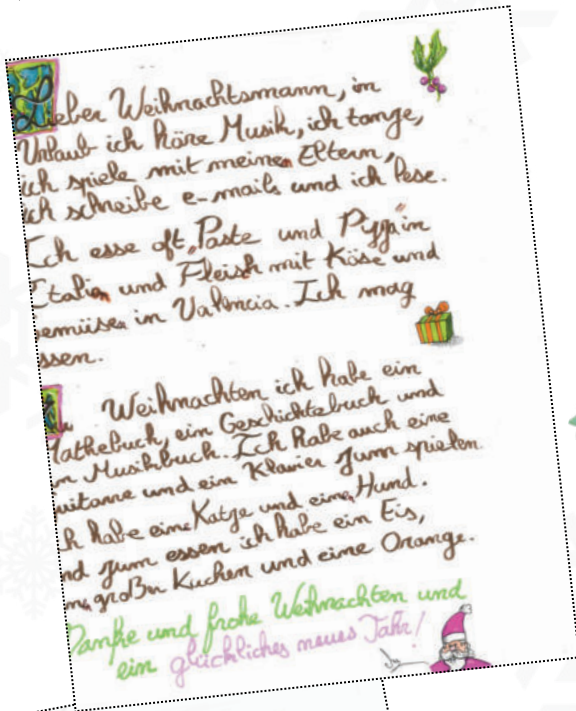 Lieber Weihnachtsmann, im
Urlaub ich höre Musik, ich tange,
ich spiele mit meinen Eltern,
ich schreibe e-mails und ich lese.
Ich esse oft, Paste und Pyzza in
Italia, und Fleish mit Köse und
emüse in Valencia. Ich mag
ssen.
Zu Weihnachten ich habe ein
Mathebuch, ein Geschichtebuch und
in Musikbuch. Ich habe auch eine
uitarre und ein Klavier zum spielen.
ch habe eine Katze und eine Hund.
nd zum essen ich habe ein Eis,
großen Kuchen und eine Orange.
Danke und frohe Weihnachten und
ein glückliches neues Jahr!